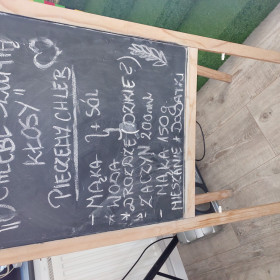 "O CHLEBIE
KŁOSY"
PIECZEMY CHLEB
- MĄKA } + SÓL
* WODA
* DROŻDŻE (DZIKIE?)
ZACZYN 200ml
- MĄKA 150g
MIESZANIE + DODATKI